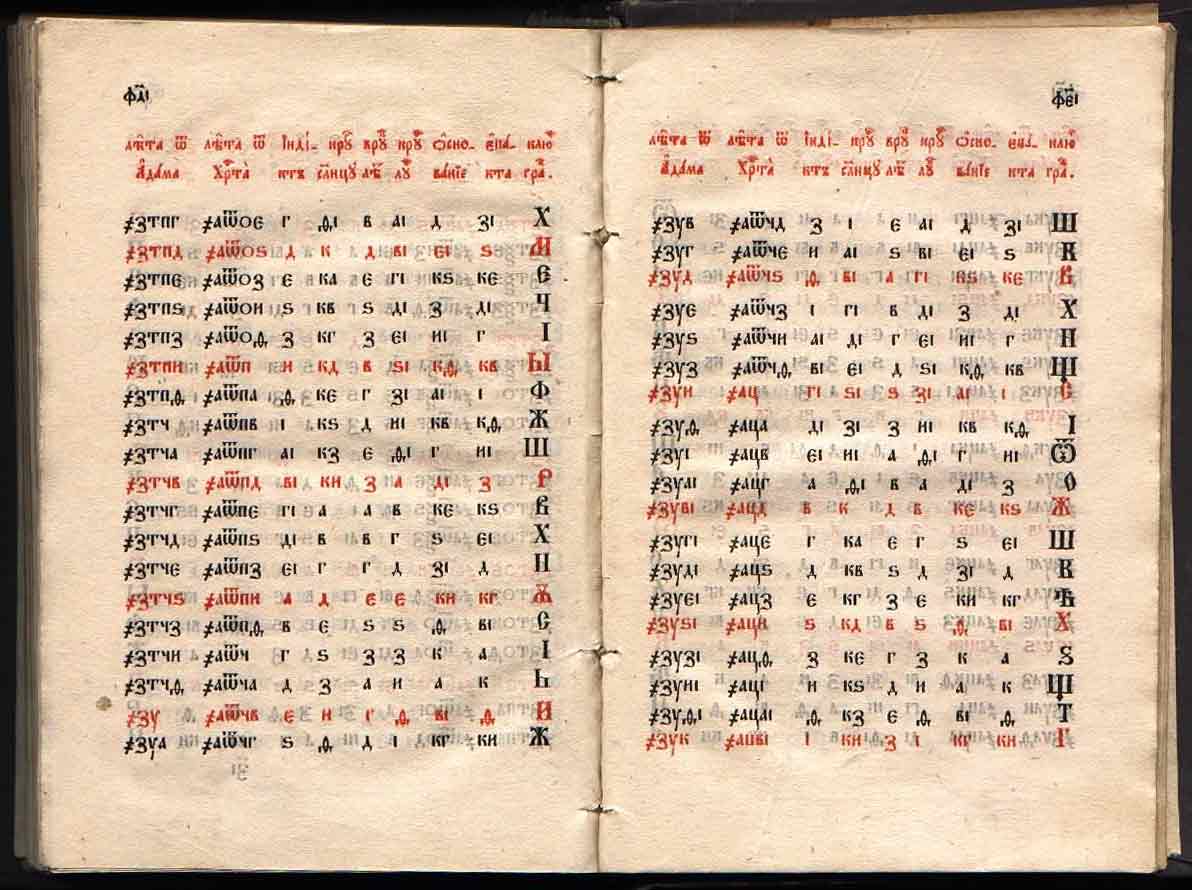 фд҃і
лѣ́та ѿ лѣ́та ѿ і҆нді- крꙋ́ врꙋ́ крꙋ́ ѻ҆сно- є҆па- клю̀
А҆да́ма Хрⷭ҇та̀ ктъ сл҃нцꙋ лѣ̀ лꙋ̀ ва́нїе кта гра̀.
҂зтпг ҂аѿое г ѳі в аі д зі Х
҂зтпд ҂аѿоѕ д к д ві еі ѕ М
҂зтпе ҂аѿоз е ка е гі кѕ ке Є
҂зтпѕ ҂аѿои ѕ кв ѕ ді з ді Ч
҂зтпз ҂аѿоѳ з кг з еі иі г І
҂зтпи ҂аѿп и кд в ѕі кѳ кв Ы
҂зтпѳ ҂аѿпа ѳ ке г зі аі і Ф
҂зтч ҂аѿпв і кѕ д иі кв кѳ Ж
҂зтча ҂аѿпг аі кз е ѳі г иі Ш
҂зтчв ҂аѿпд ві ки з а ді з Р
҂зтчг ҂аѿпе гі а а в ке кѕ В
҂зтчд ҂аѿпѕ ді в в г ѕ еі Х
҂зтче ҂аѿпз еі г г д зі д Н
҂зтчѕ ҂аѿпи а д е е ки кг Ѫ
҂зтчз ҂аѿпѳ в е ѕ ѕ ѳ ві С
҂зтчи ҂аѿч г ѕ з з к а І
҂зтчѳ ҂аѿча д з а и а к Ь
҂зу ҂аѿчв е и г ѳ ві ѳ И
҂зуа ҂аѿчг ѕ ѳ д і кг ки Ж
фе҃і
лѣ́та ѿ лѣ́та ѿ і҆нді- крꙋ́ врꙋ́ крꙋ́ ѻ҆сно- є҆па- клю̀
А҆да́ма Хрⷭ҇та̀ ктъ сл҃нцꙋ лѣ̀ лꙋ̀ ва́нїе кта гра̀.
҂зув ҂аѿчд з і е аі д зі Ш
҂зуг ҂аѿче и аі ѕ ві еі ѕ К
҂зуд ҂аѿчѕ ѳ ві а гі кѕ ке В
҂зуе ҂аѿчз і гі в ді з ді Х
҂зуѕ ҂аѿчи аі ді г еі иі г Н
҂зуз ҂аѿчѳ ві еі д ѕі кѳ кв Щ
҂зуи ҂ац гі ѕі ѕ зі аі і С
҂зуѳ ҂аца ді зі з иі кв кѳ І
҂зуі ҂ацв еі иі а ѳі г иі Ѿ
҂зуаі ҂ацг а ѳі в а ді з О
҂зуві ҂ацд в к д в ке кѕ Ж
҂зугі ҂аце г ка е г ѕ еі Ш
҂зуді ҂ацѕ д кв ѕ д зі д К
҂зуеі ҂ацз е кг з е ки кг Ѣ
҂зуѕі ҂аци ѕ кд в ѕ ѳ ві Х
҂зузі ҂ацѳ з ке г з к а Ѕ
҂зуиі ҂аці и кѕ д и а к Щ
҂зуѳі ҂ацаі ѳ кз е ѳ ві ѳ Т
҂зук ҂ацві і ки з і кг ки Г